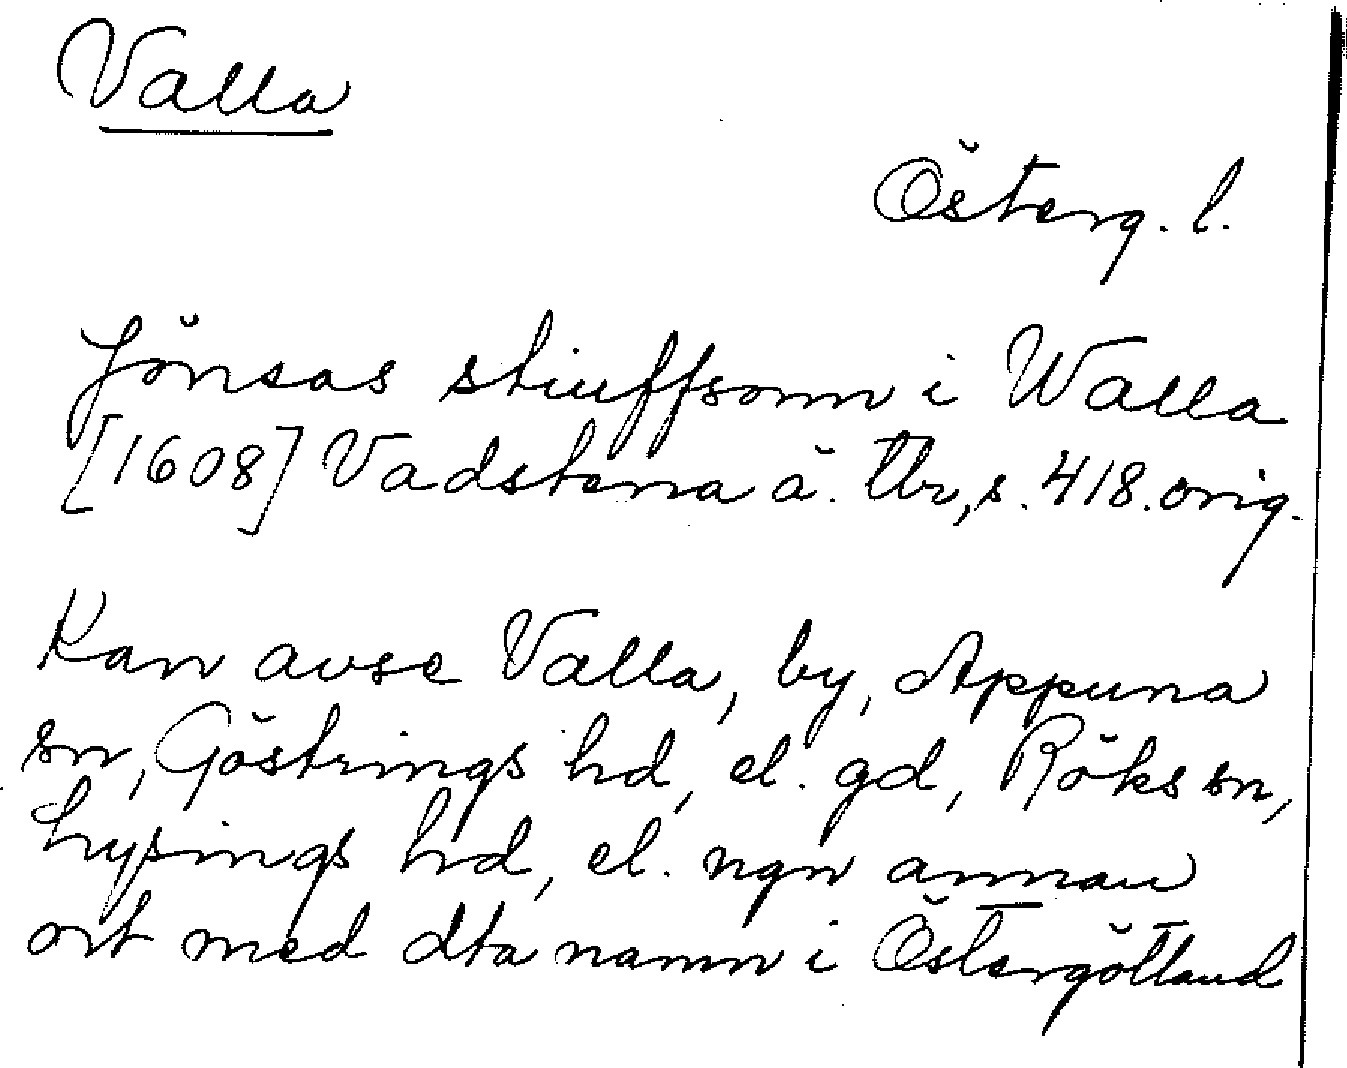 Valla
Österg. l.
Jönsas stiuffsonn i Walla
[1608] Vadstena ä. tbr, s. 418. orig.
Kan avse Valla, by, Appuna
sn, Göstrings hd, el. gd, Röks sn,
Lysings hd, el. ngn annan
ort med dta namn i Östergötland